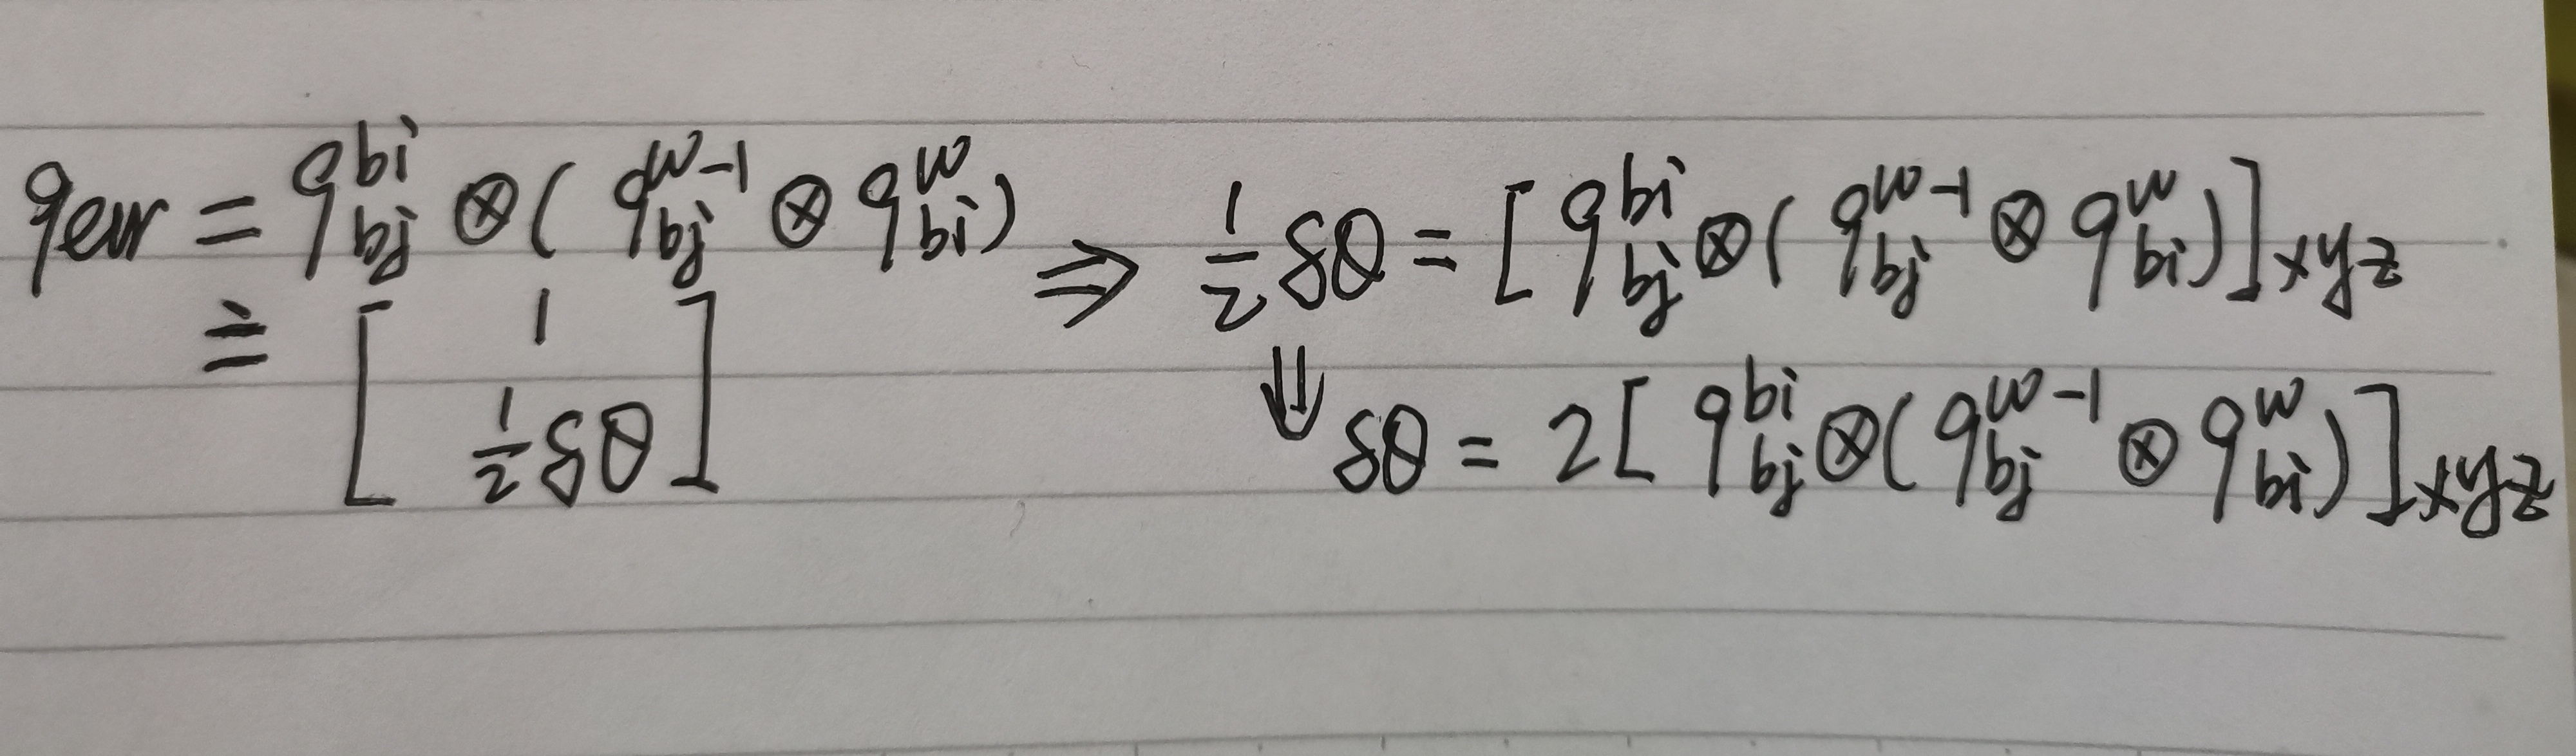 q_{err} = q^{bi}_{bj} ⊗ ( q^{w-1}_{bj} ⊗ q^{w}_{bi} ) ⇒ \frac{1}{2} δθ = [ q^{bi}_{bj} ⊗ ( q^{w-1}_{bj} ⊗ q^{w}_{bi} ) ]_{xyz}
≐ \begin{bmatrix} 1 \\ \frac{1}{2} δθ \end{bmatrix} ⇓ δθ = 2 [ q^{bi}_{bj} ⊗ ( q^{w-1}_{bj} ⊗ q^{w}_{bi} ) ]_{xyz}